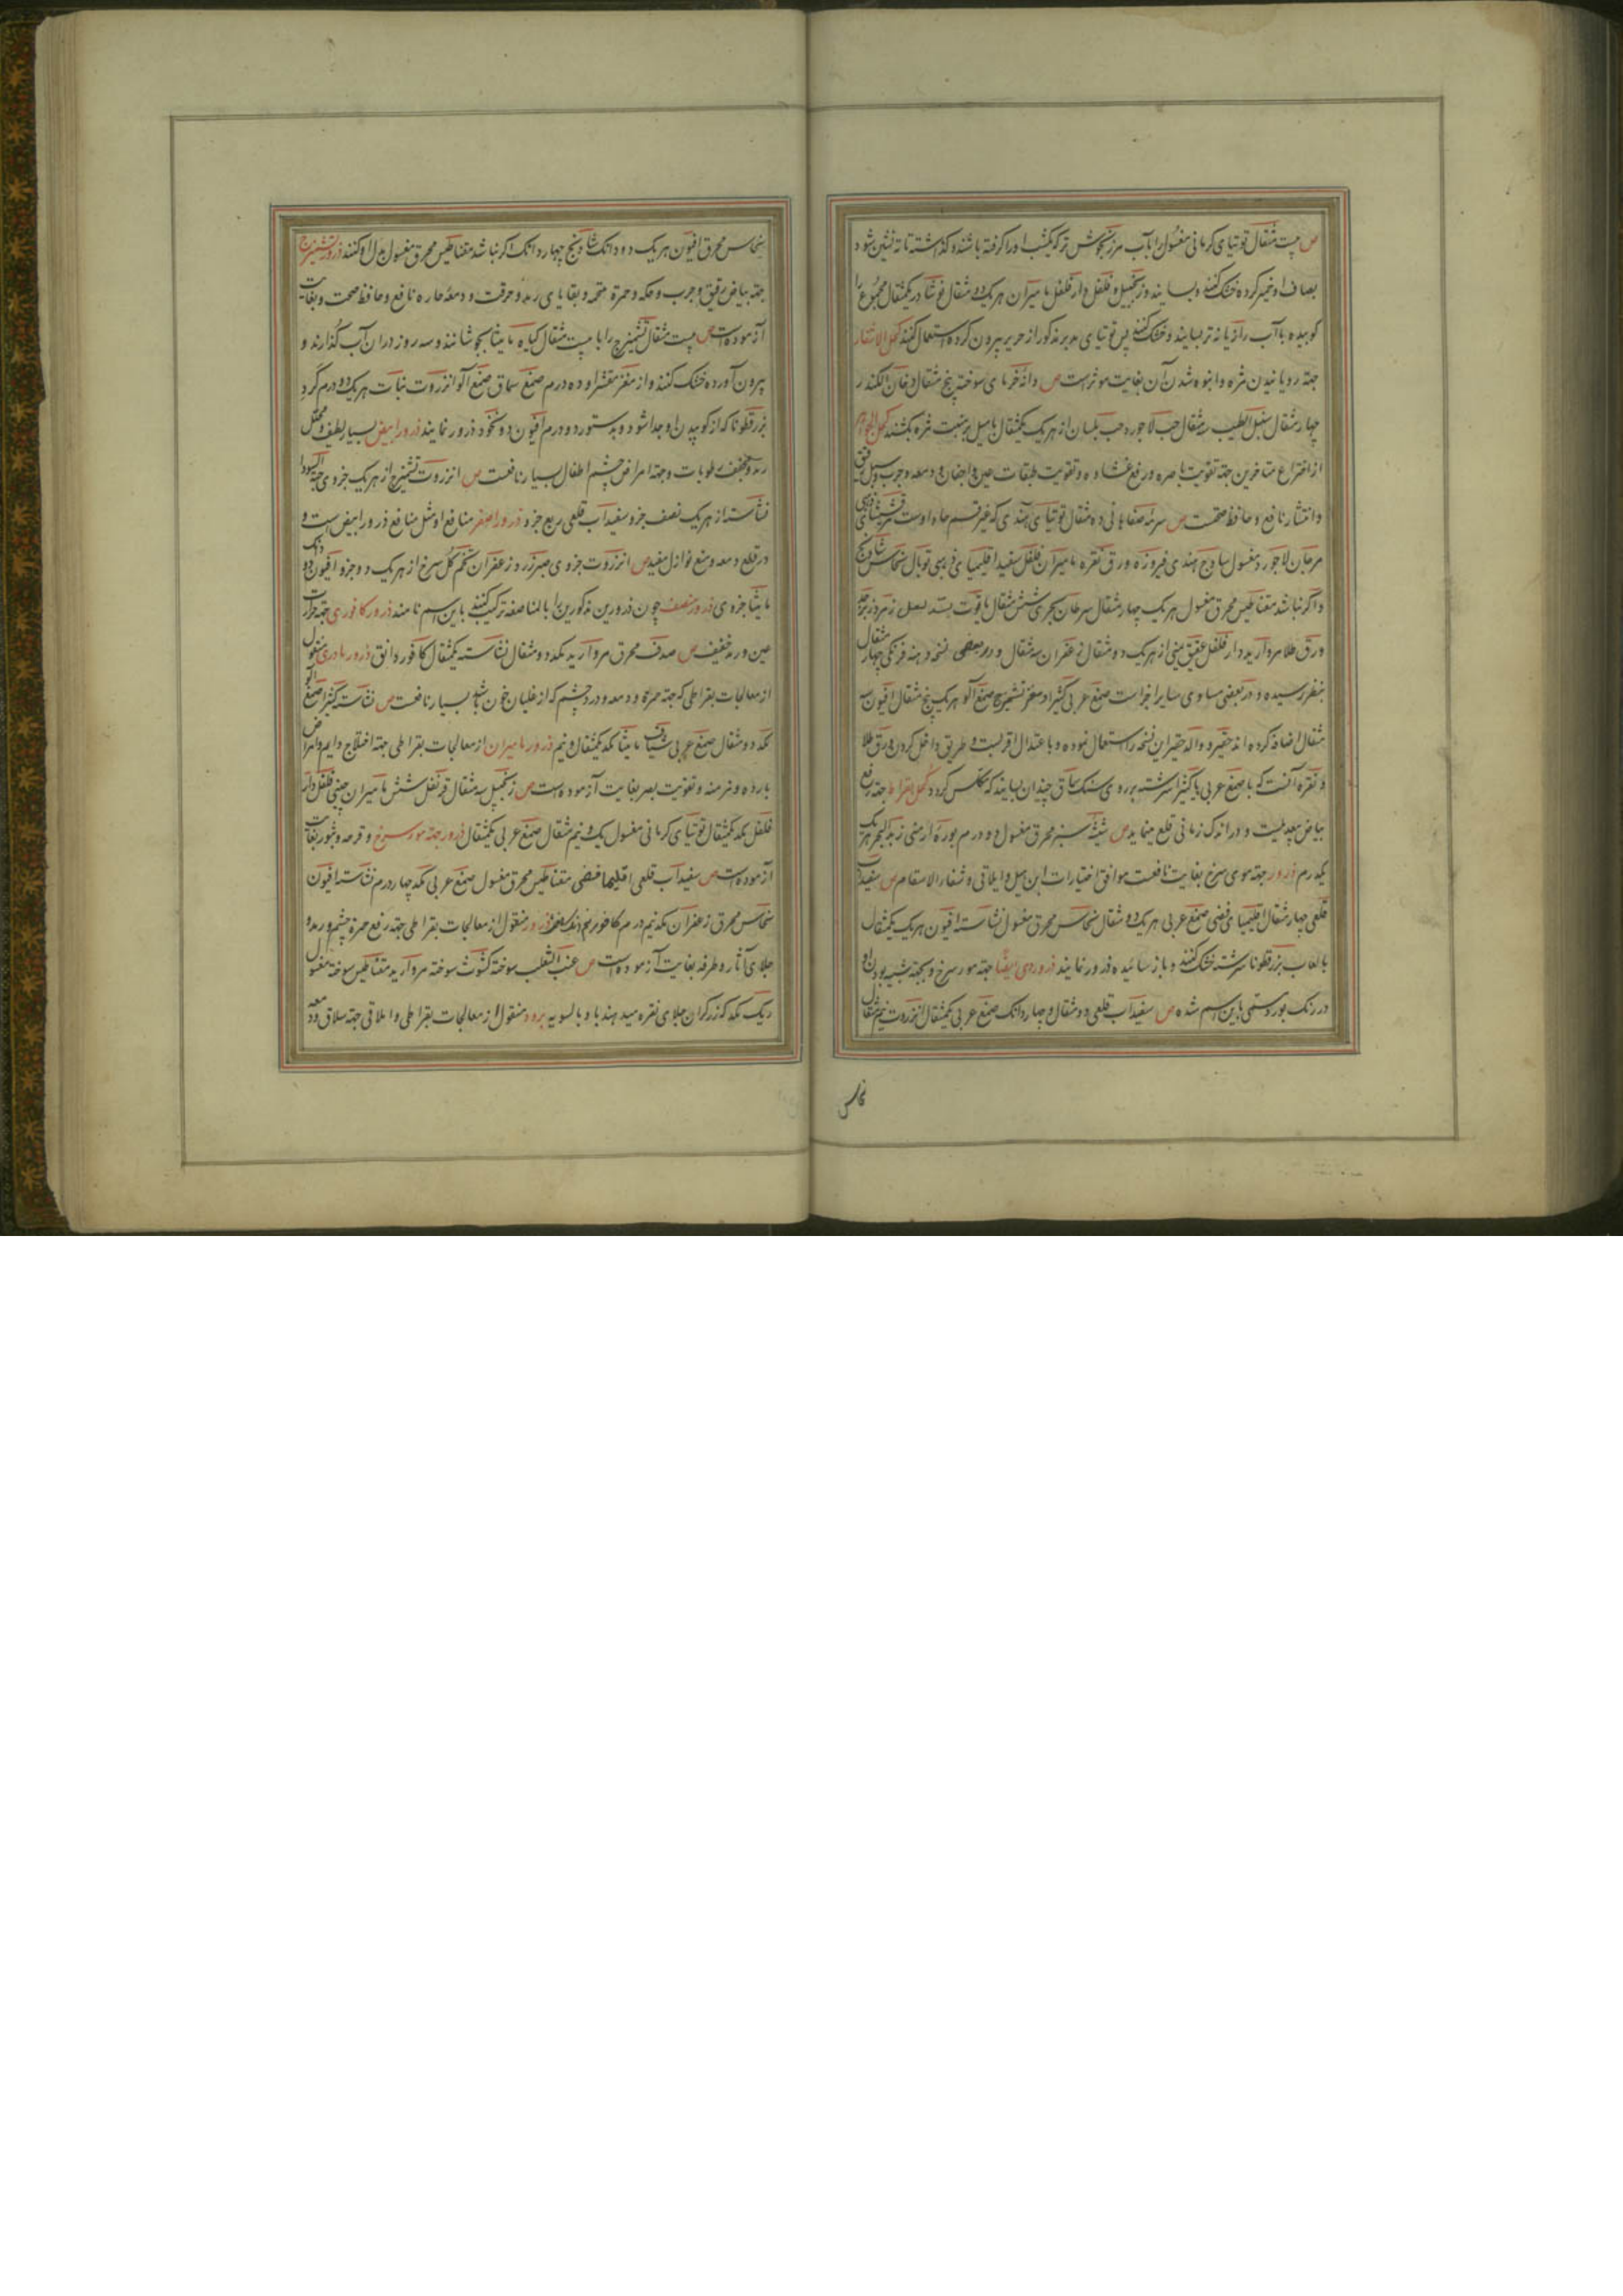 ص بیست مثقال توتیای کرمانی مغسول را بآب مرزنجوش تر که یکشب اورا کرفته باشند و کذاشته تا ته نشین شود
بصاف او خمیر کرده خشک کنند و بسایند و زنجبیل و فلفل دار فلفل مامیران هر یک دو مثقال نوشادر یکمثقال مجموع را
کوبیده باآب رازیانه تر بسایند و خشک کنند پس توتیای مدبر مذکور از حریر بیرون کرده استعمال کنند کحل الاشفار
جهته رویانیدن مژه و انبوه شدن آن بغایت موثر است ص دانه خرمای سوخته پنج مثقال دخان الکندر
چهار مثقال سنبل الطیب سه مثقال حب لاجورد حب بلسان از هر یک یکمثقال بامیل بر منبت مژه بکشند کحل الجواهر
از اختراع متاخرین جهته تقویت باصره و رفع غشاوه و تقویت طبقات عین و اجفان و دمعه و جرب و سبل
و انتشار نافع و حافظ صحت ص سرمه صفاهانی ده مثقال توتیای هندی که غیر قسم حاد اوست مرقشیشای
مرجان لاجورد مغسول ساذج هندی فیروزه ورق نقره مامیران فلفل سفید اقلیمیای ذهبی توبال نحاس شادنج
و اکر نباشد مقناطیس محرق مغسول هر یک چهار مثقال سرطان بحری شش مثقال یاقوت بسد لعل زمرد زبرجد
ورق طلا مروارید دار فلفل عقیق یمنی از هر یک دو مثقال زعفران سه مثقال و در بعضی نسخه دهنه فرنکی چهار مثقال
بنظر رسیده و در بعضی مساوی سایر اجزاست صمغ عربی کثیرا و مغز تشمیزج صمغ آلو هر یک پنج مثقال افیون سه
مثقال اضافه کرده اند حقیر و والد حقیر این نسخه را استعمال نموده و باعتدال اقربست و طریق داخل کردن ورق طلا
و نقره آنست که با صمغ عربی یا کثیرا سرشته بر روی سنک سماق چندان بسایند که مکلس کردد کحل بقراط جهته رفع
بیاض بیعدیلست و در اندک زمانی قلع مینماید ص شیشه سبز محرق مغسول دو درم بوره ارمنی زبد البحر هر یک
یکدرم ذرور جهته موی سرخ بغایت نافعست موافق اختیارات ابن هبل و ایلاقی و شفاء الاسقام ص سفیداب
قلعی چهار مثقال اقلیمیای فضی صمغ عربی هر یک دو مثقال نحاس محرق مغسول نشاسته افیون هر یک یکمثقال
با لعاب بزرقطونا سرشته خشک کنند و باز سائیده ذرور نمایند ذروردی ایضًا جهته مور سرخ و بجهته شبیه بودن او
در رنک بورد مسمی باین اسم شده ص سفیداب قلعی دو مثقال و چهار دانک صمغ عربی یکمثقال انزروت نیم مثقال
نحاس
نحاس محرق افیون هر یک دو دانک شادنج چهار دانک اکر نباشد مقناطیس محرق مغسول بدل او کنند ذرور تشمیزج
جهته بیاض رقیق و جرب و حکه و حمرة ملتحمه و بقایای رمد و حرقت و دمعهٔ حاره نافع و حافظ صحت و بغایت
آزموده است ص بیست مثقال تشمیزج را با بیست مثقال کیاه مامیثا بجوشانند و سه روز در ان آب کذارند و
بیرون آورده خشک کنند و از مغز مقشر او ده درم صمغ سماق صمغ آلو انزروت نبات هر یک دو درم کرد
بزرقطونا که از کوبیدن او جدا شود و بدستور دو درم افیون دو نخود ذرور نمایند ذرور ابیض بسیار لطیف و محلل
رمد و مجفف رطوبات و جهته امراض چشم اطفال بسیار نافعست ص انزروت تشمیزج از هر یک جزوی حبة السودا
نشاسته از هر یک نصف جزو سفیداب قلعی ربع جزو ذرور اصفر منافع او مثل منافع ذرور ابیض است و
در قلع دمعه و منع نوازل مفید ص انزروت جزوی صبر زرد زعفران تخم کل سرخ از هر یک دو جزو افیون دو دانک
مامیثا جزوی ذرور منصف چون ذرورین مذکورین را بالمناصفه ترکیب کنند باین اسم نامند ذرور کافوری جهته حرارت
عین و رمد خفیف ص صدف محرق مروارید یکدو مثقال نشاسته یکمثقال کافور دانق ذرور مادری منقول
از معالجات بقراطی که جهته حمرة و دمعه و درد چشم که از غلیان خون باشد بسیار نافعست ص نشاسته کثیرا صمغ آلو
یکد دو مثقال صمغ عربی شیاف مامیثا یکد یکمثقال و نیم ذرور مامیران از معالجات بقراطی جهته اختلاج دایم و امراض
بارده و مزمنه و تقویت بصر بغایت آزموده است ص زنجبیل سه مثقال قرنفل شش مامیران چینی فلفل دار
فلفل یکد یکمثقال توتیای کرمانی مغسول یک و نیم مثقال صمغ عربی یکمثقال ذرور جهته مور سرخ و قرحه و بثور بغایت
آزموده است ص سفیداب قلعی اقلیمیا فضی مقناطیس محرق مغسول صمغ عربی یکد چهار درم نشاسته افیون
نحاس محرق زعفران یکد نیم درم کافور نیم دانک ذرور منقول از معالجات بقراطی جهته رفع حمرة چشم و رمد و
جلای آثار و طرفه بغایت آزموده است ص عنب الثعلب سوخته کشوث سوخته مروارید مقناطیس سوخته مغسول
ریک یکد که زرکران جلای نقره میدهند باو بالسویه برود منقول از معالجات بقراطی و ایلاقی جهته سلاق و دمعه